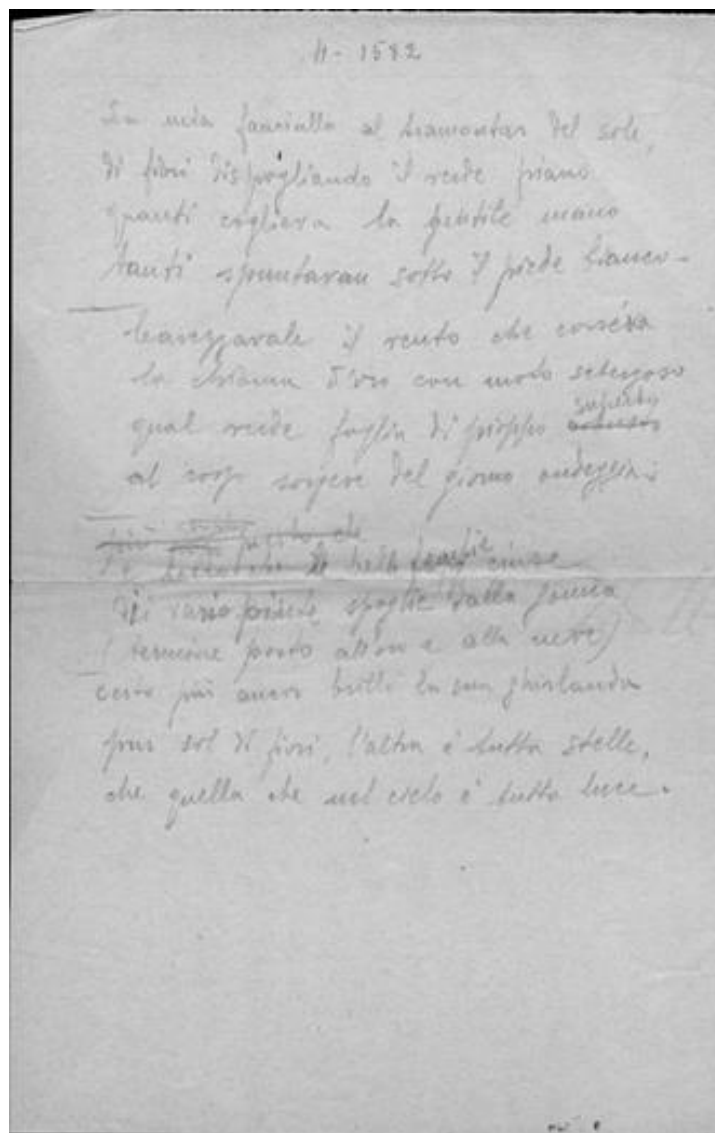 H-1582
La mia fanciulla al tramontar del sole,
di fiori dispogliando il verde piano
quanti coglieva la gentile mano
tanti spuntavan sotto il piede bianco.
il vento che
la chioma d'oro con modo
qual verde foglia di pioppo superbo
al sorgere del giorno
più
bella fronte cinse
di vario spoglie dalla
(termine posto all'oro e alla neve)
certo più ancor brilla la sua ghirlanda
pur sol di fiori, l'altra è tutta stelle,
che quella che nel cielo è tutta luce.